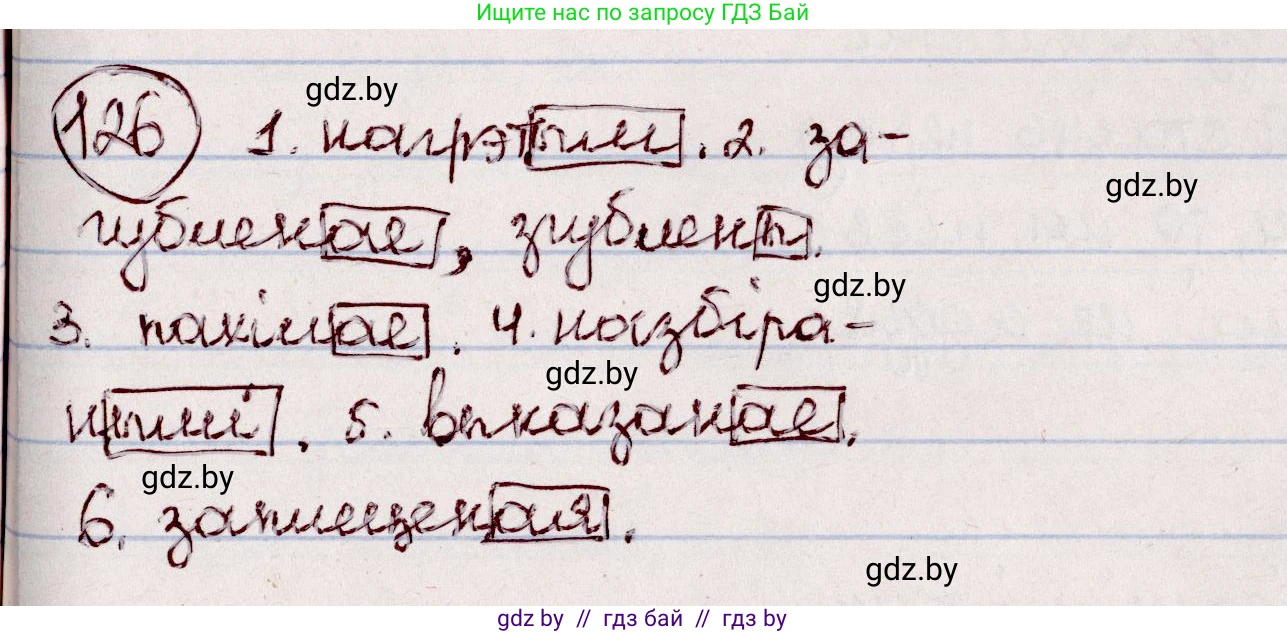 Ищите нас по запросу ГДЗ Бай
gdz.by
126 1. нагрэтым. 2. за-
gdz.by
губленае, згублены.
gdz.by
3. пахілае. 4. назбіра-
gdz.by
нымі. 5. выказанае.
gdz.by
6. заплеценая.
gdz.by
gdz.by // гдз бай // гдз by